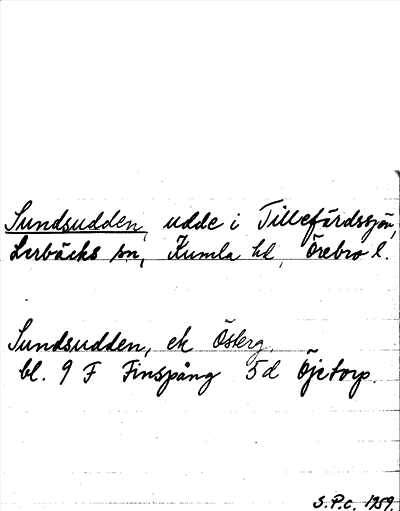 Sundsudden, udde i Tillefärdssjön,
Lerbäcks sn, Kumla hd, Örebro l.
Sundsudden, ek Österg.
bl. 9 F Finspång 5d Öjetorp.
S.P.c. 1959.